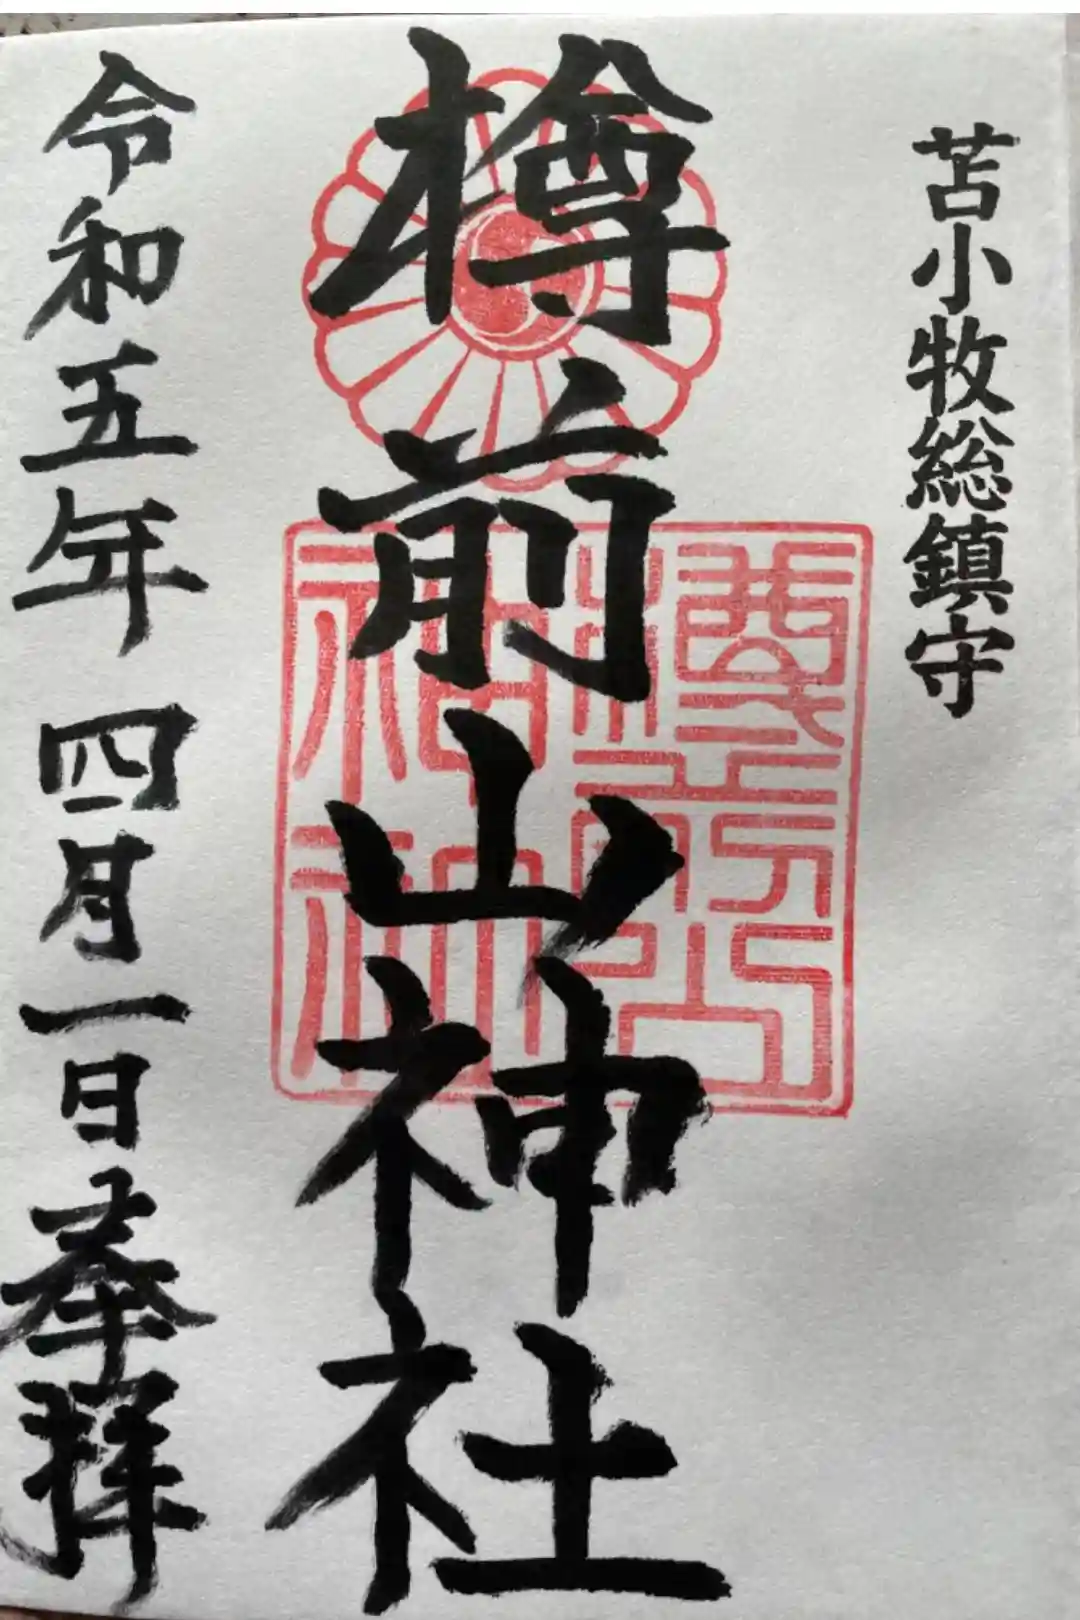 苫小牧総鎮守
樽前山神社
令和五年四月一日奉拝